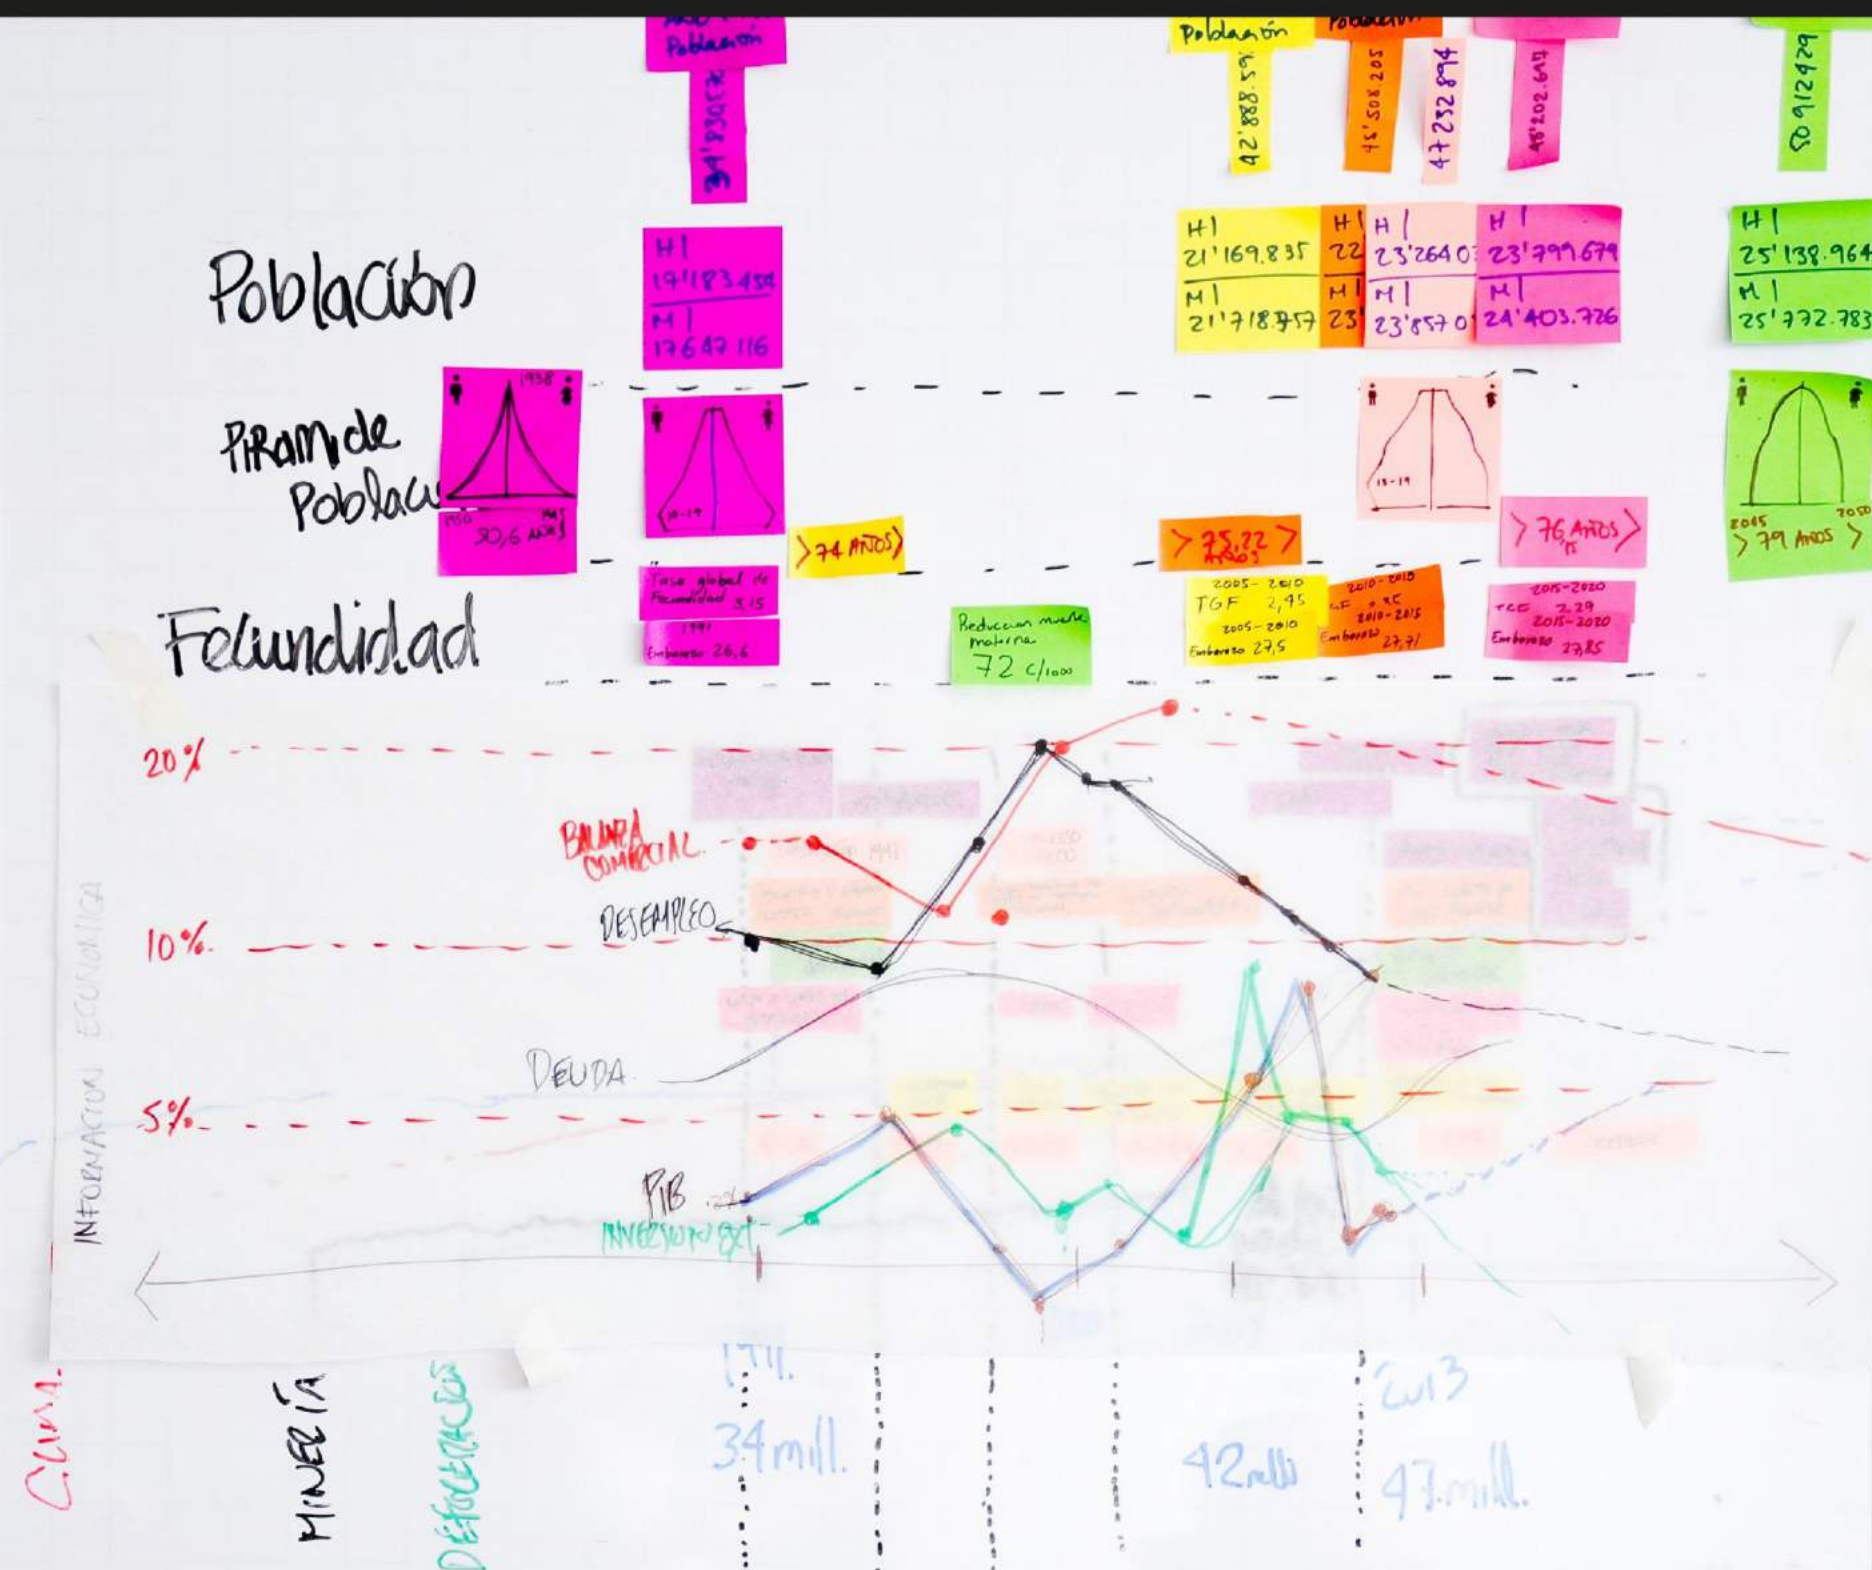 Población
Población
Población
42'888.59
45'508.205
47232894
48'202.617
50912429
Población
H|
17'183.454
M|
17647116
H|
21'169.835
M|
21'718.757
H|
22
M|
23'
H|
23'2640
M|
23'8570
H|
23'799.679
M|
24'403.726
H|
25'138.964
M|
25'772.783
Piramide
Poblaci
1938
1950
50,6 AÑOS
>74 AÑOS>
>75,22>
AÑOS
15-19
>76, AÑOS>
2045 2050
>79 AÑOS>
Fecundidad
Tasa global de
Fecundidad 3,15
1991
Embarazo 26,6
Reduccion muerte
materna
72 c/1000
2005-2010
TGF 2,45
2005-2010
Embarazo 27,5
2010-2015
2010-2015
Embarazo 27,71
2015-2020
2,29
2015-2020
Embarazo 27,85
INFORMACION ECONOMICA
20%
BALANZA
COMERCIAL
DESEMPLEO
10%
DEUDA
5%
PIB
INVERSION EXT
CLIMA
MINERÍA
34 mill.
42 mill
2013
47 mill.